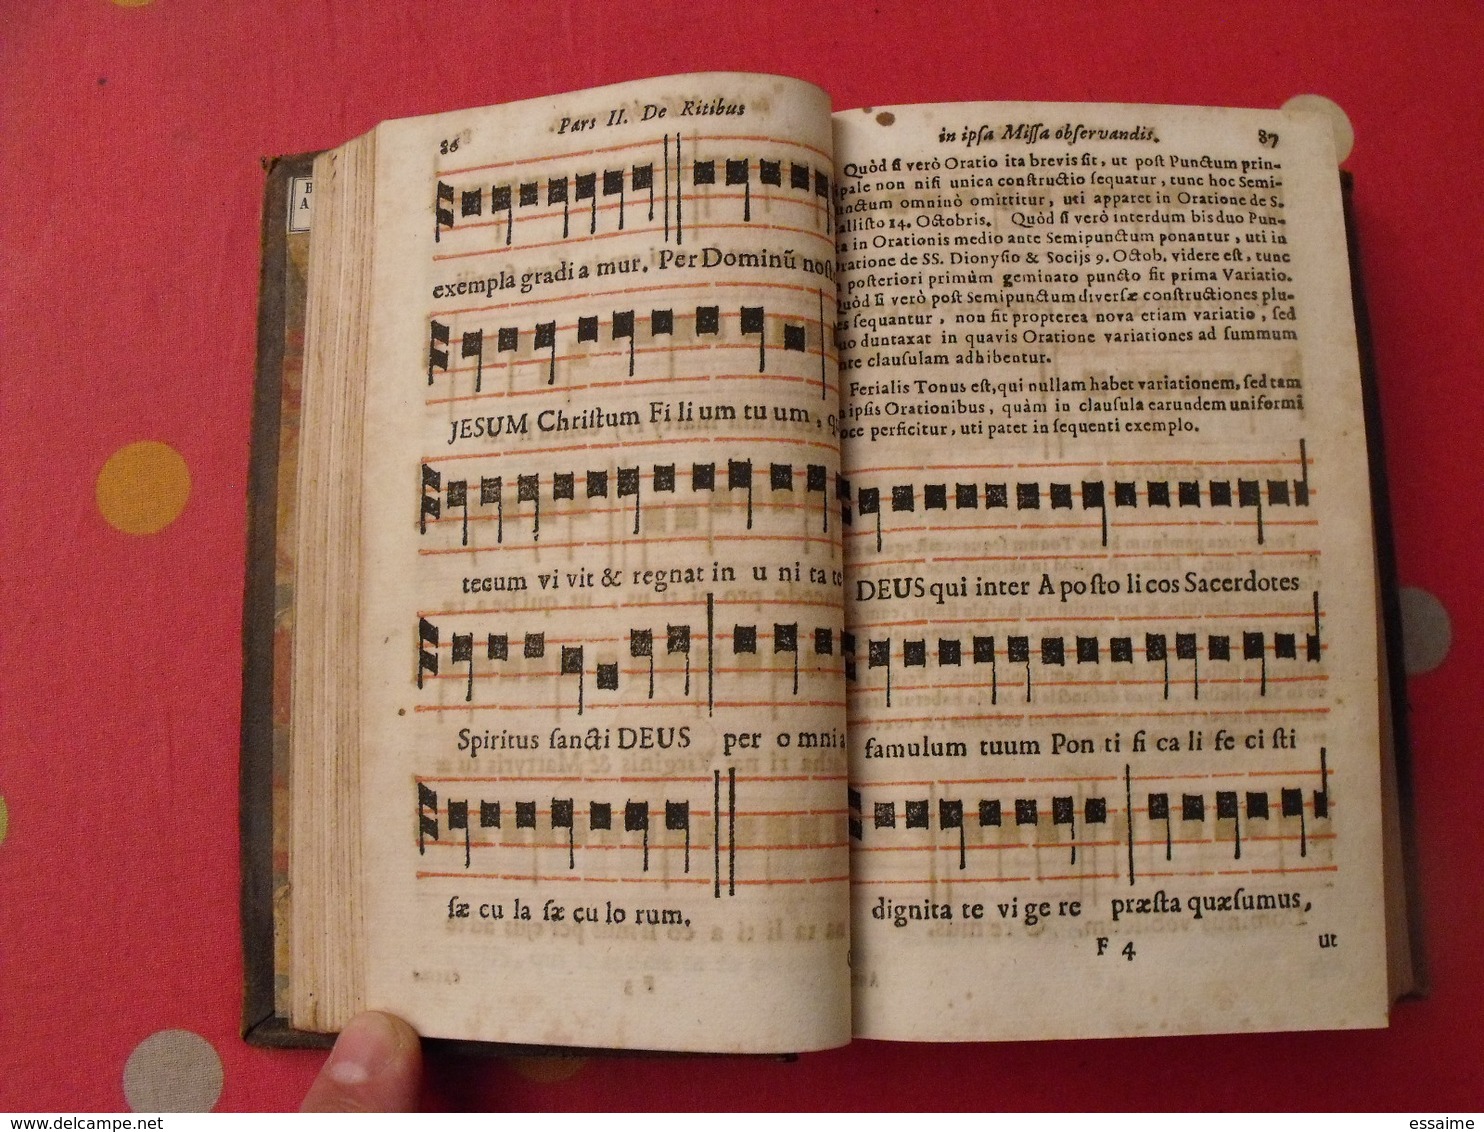 86
Pars II. De Ritibus
exempla gradi a mur. Per Dominū noſt
JESUM Chriſtum Fi li um tu um, q
tecum vi vit & regnat in u ni ta te
Spiritus ſancti DEUS per o mni a
ſæ cu la ſæ cu lo rum.
in ipſa Miſſa obſervandis. 87
Quòd ſi verò Oratio ita brevis ſit, ut poſt Punctum prin-
pale non niſi unica conſtructio ſequatur, tunc hoc Semi-
nctum omninò omittitur, uti apparet in Oratione de S.
alliſto 14. Octobris. Quòd ſi verò interdum bis duo Pun-
ta in Orationis medio ante Semipunctum ponantur, uti in
ratione de SS. Dionyſio & Socijs 9. Octob. videre eſt, tunc
poſteriori primùm geminato puncto fit prima Variatio.
Quòd ſi verò poſt Semipunctum diverſæ conſtructiones plu-
es ſequantur, non fit propterea nova etiam variatio, ſed
uo duntaxat in quavis Oratione variationes ad ſummum
nte clauſulam adhibentur.
Ferialis Tonus eſt, qui nullam habet variationem, ſed tam
ipſis Orationibus, quàm in clauſula earundem uniformi
oce perficitur, uti patet in ſequenti exemplo.
DEUS qui inter A po ſto li cos Sacerdotes
famulum tuum Pon ti fi ca li fe ci ſti
dignita te vi ge re præſta quæſumus,
F 4 ut
www.delcampe.net
essaime